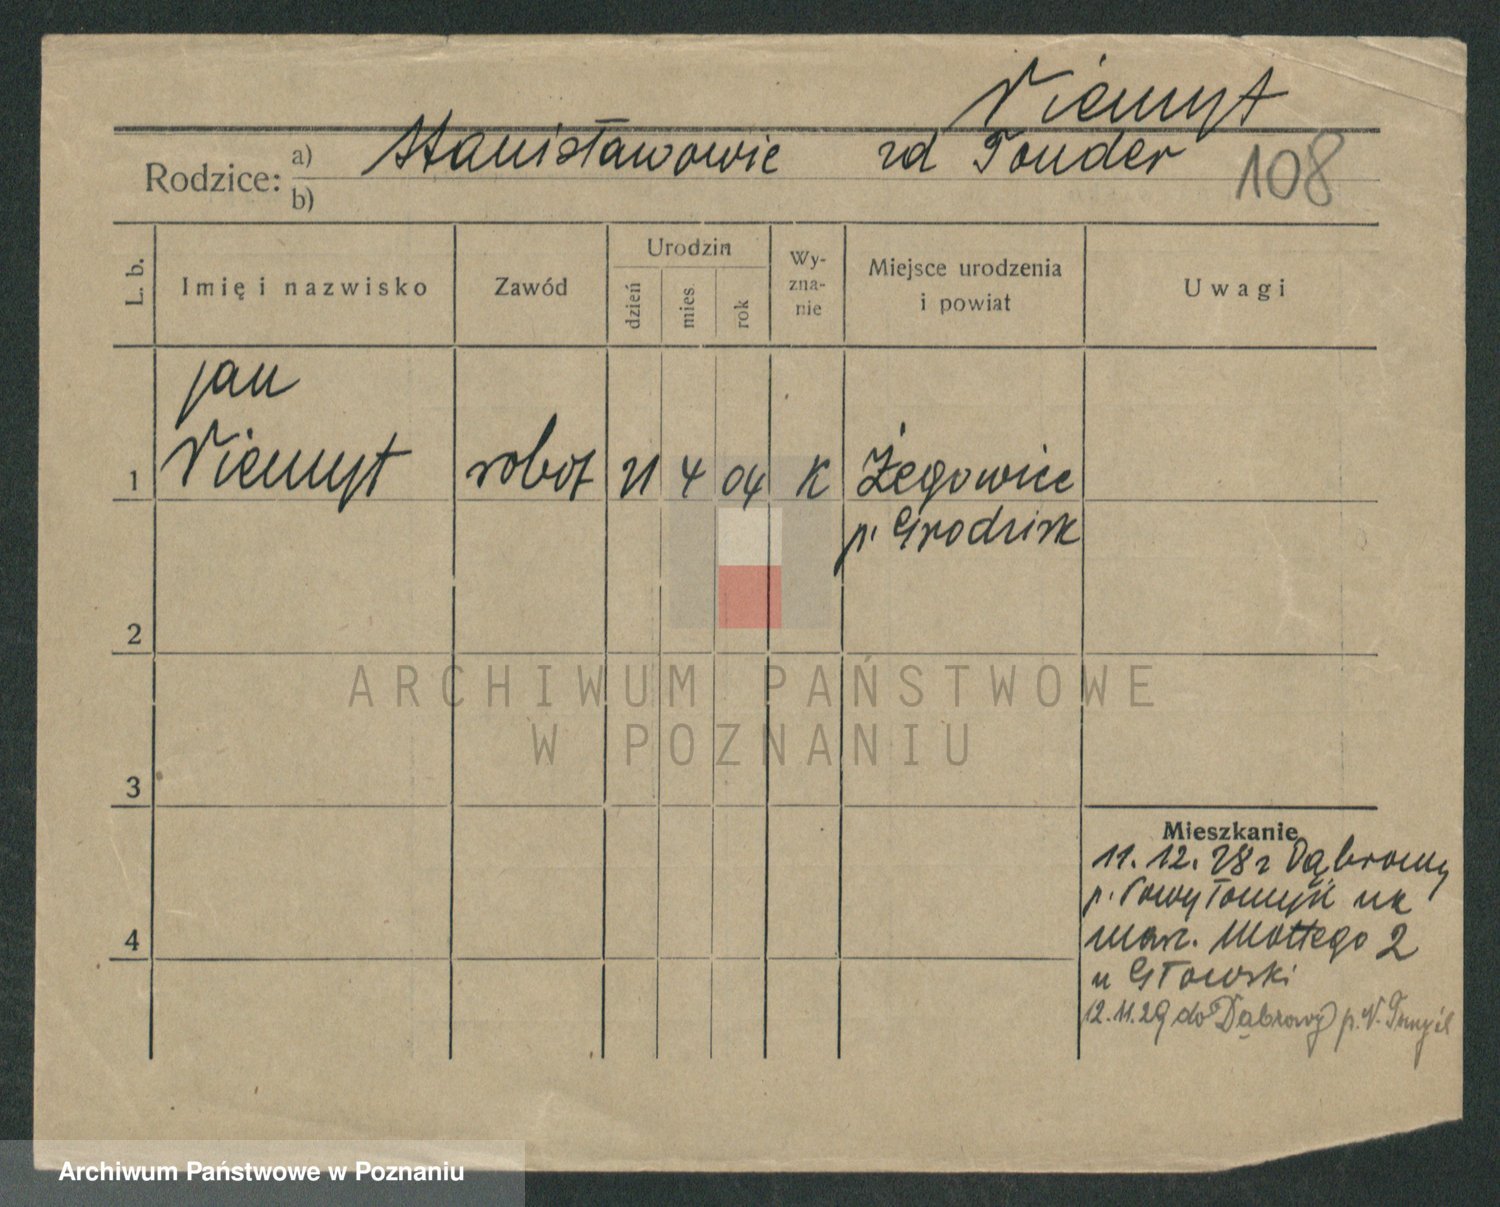 Niemyt
Rodzice: a) Stanisławowie zd Tonder 108
b)
L. b. Imię i nazwisko Zawód Urodzin dzień mies. rok Wy-zna-nie Miejsce urodzenia i powiat Uwagi
Jan
1 Niemyt robot 21 4 04 K Żegowice
p. Grodzisk
2
3
4
Mieszkanie
11. 12. 28 r Dąbrowy
p. Nowy Tomyśl na
mar. Mottego 2
u Głowski
12.11.29 do Dąbrowy p. N. Tomyśl
ARCHIWUM PAŃSTWOWE
W POZNANIU
Archiwum Państwowe w Poznaniu